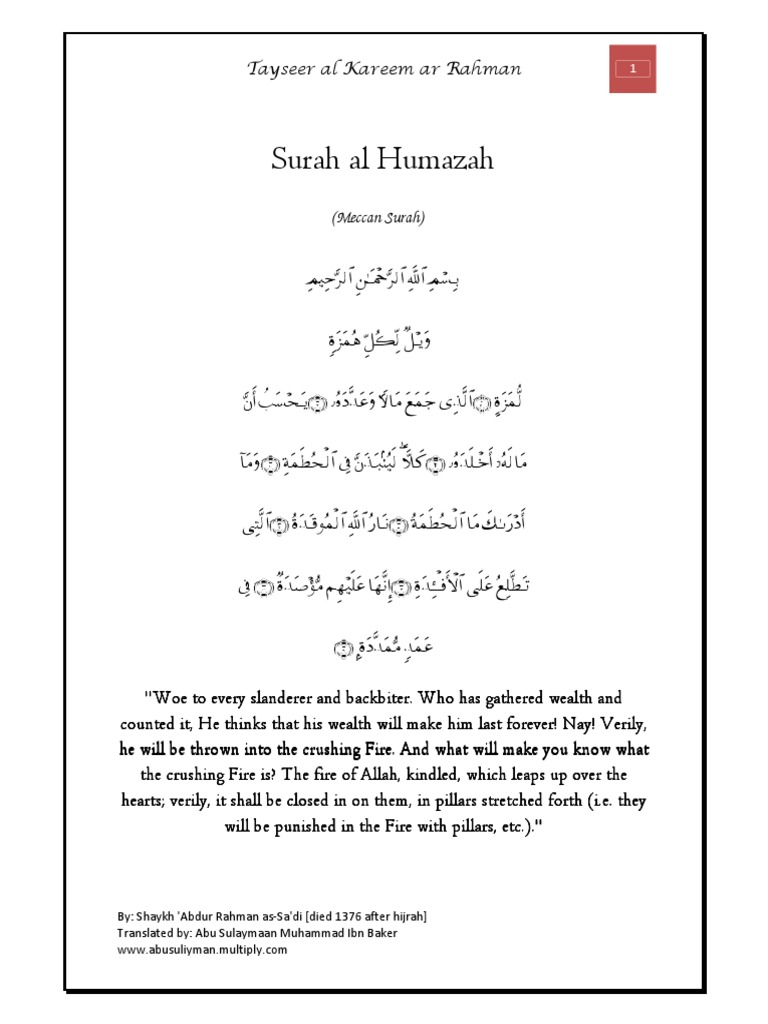 Tayseer al Kareem ar Rahman
1
Surah al Humazah
(Meccan Surah)
بِسْمِ ٱللَّهِ ٱلرَّحْمَـٰنِ ٱلرَّحِيمِ
وَيْلٌۭ لِّكُلِّ هُمَزَةٍۢ
لُّمَزَةٍ ٱلَّذِى جَمَعَ مَالًۭا وَعَدَّدَهُۥ يَحْسَبُ أَنَّ
مَالَهُۥٓ أَخْلَدَهُۥ كَلَّا ۖ لَيُنۢبَذَنَّ فِى ٱلْحُطَمَةِ وَمَآ
أَدْرَىٰكَ مَا ٱلْحُطَمَةُ نَارُ ٱللَّهِ ٱلْمُوقَدَةُ ٱلَّتِى
تَطَّلِعُ عَلَى ٱلْأَفْـِٔدَةِ إِنَّهَا عَلَيْهِم مُّؤْصَدَةٌۭ فِى
عَمَدٍۢ مُّمَدَّدَةٍۭ
"Woe to every slanderer and backbiter. Who has gathered wealth and
counted it, He thinks that his wealth will make him last forever! Nay! Verily,
he will be thrown into the crushing Fire. And what will make you know what
the crushing Fire is? The fire of Allah, kindled, which leaps up over the
hearts; verily, it shall be closed in on them, in pillars stretched forth (i.e. they
will be punished in the Fire with pillars, etc.)."
By: Shaykh 'Abdur Rahman as-Sa'di [died 1376 after hijrah]
Translated by: Abu Sulaymaan Muhammad Ibn Baker
www.abusuliyman.multiply.com